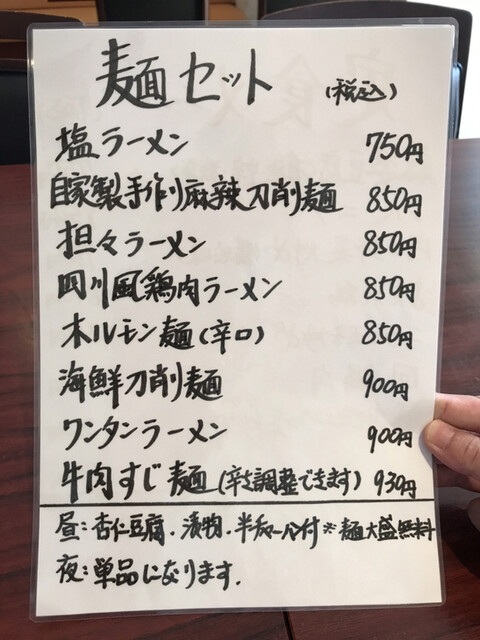 麺セット (税込)
塩ラーメン 750円
自家製手作り麻辣刀削麺 850円
担々ラーメン 850円
四川風鶏肉ラーメン 850円
ホルモン麺(辛口) 850円
海鮮刀削麺 900円
ワンタンラーメン 900円
牛肉すじ麺(辛さ調整できます) 930円
昼:杏仁豆腐.漬物.半チャーハン付*麺大盛無料
夜:単品になります.